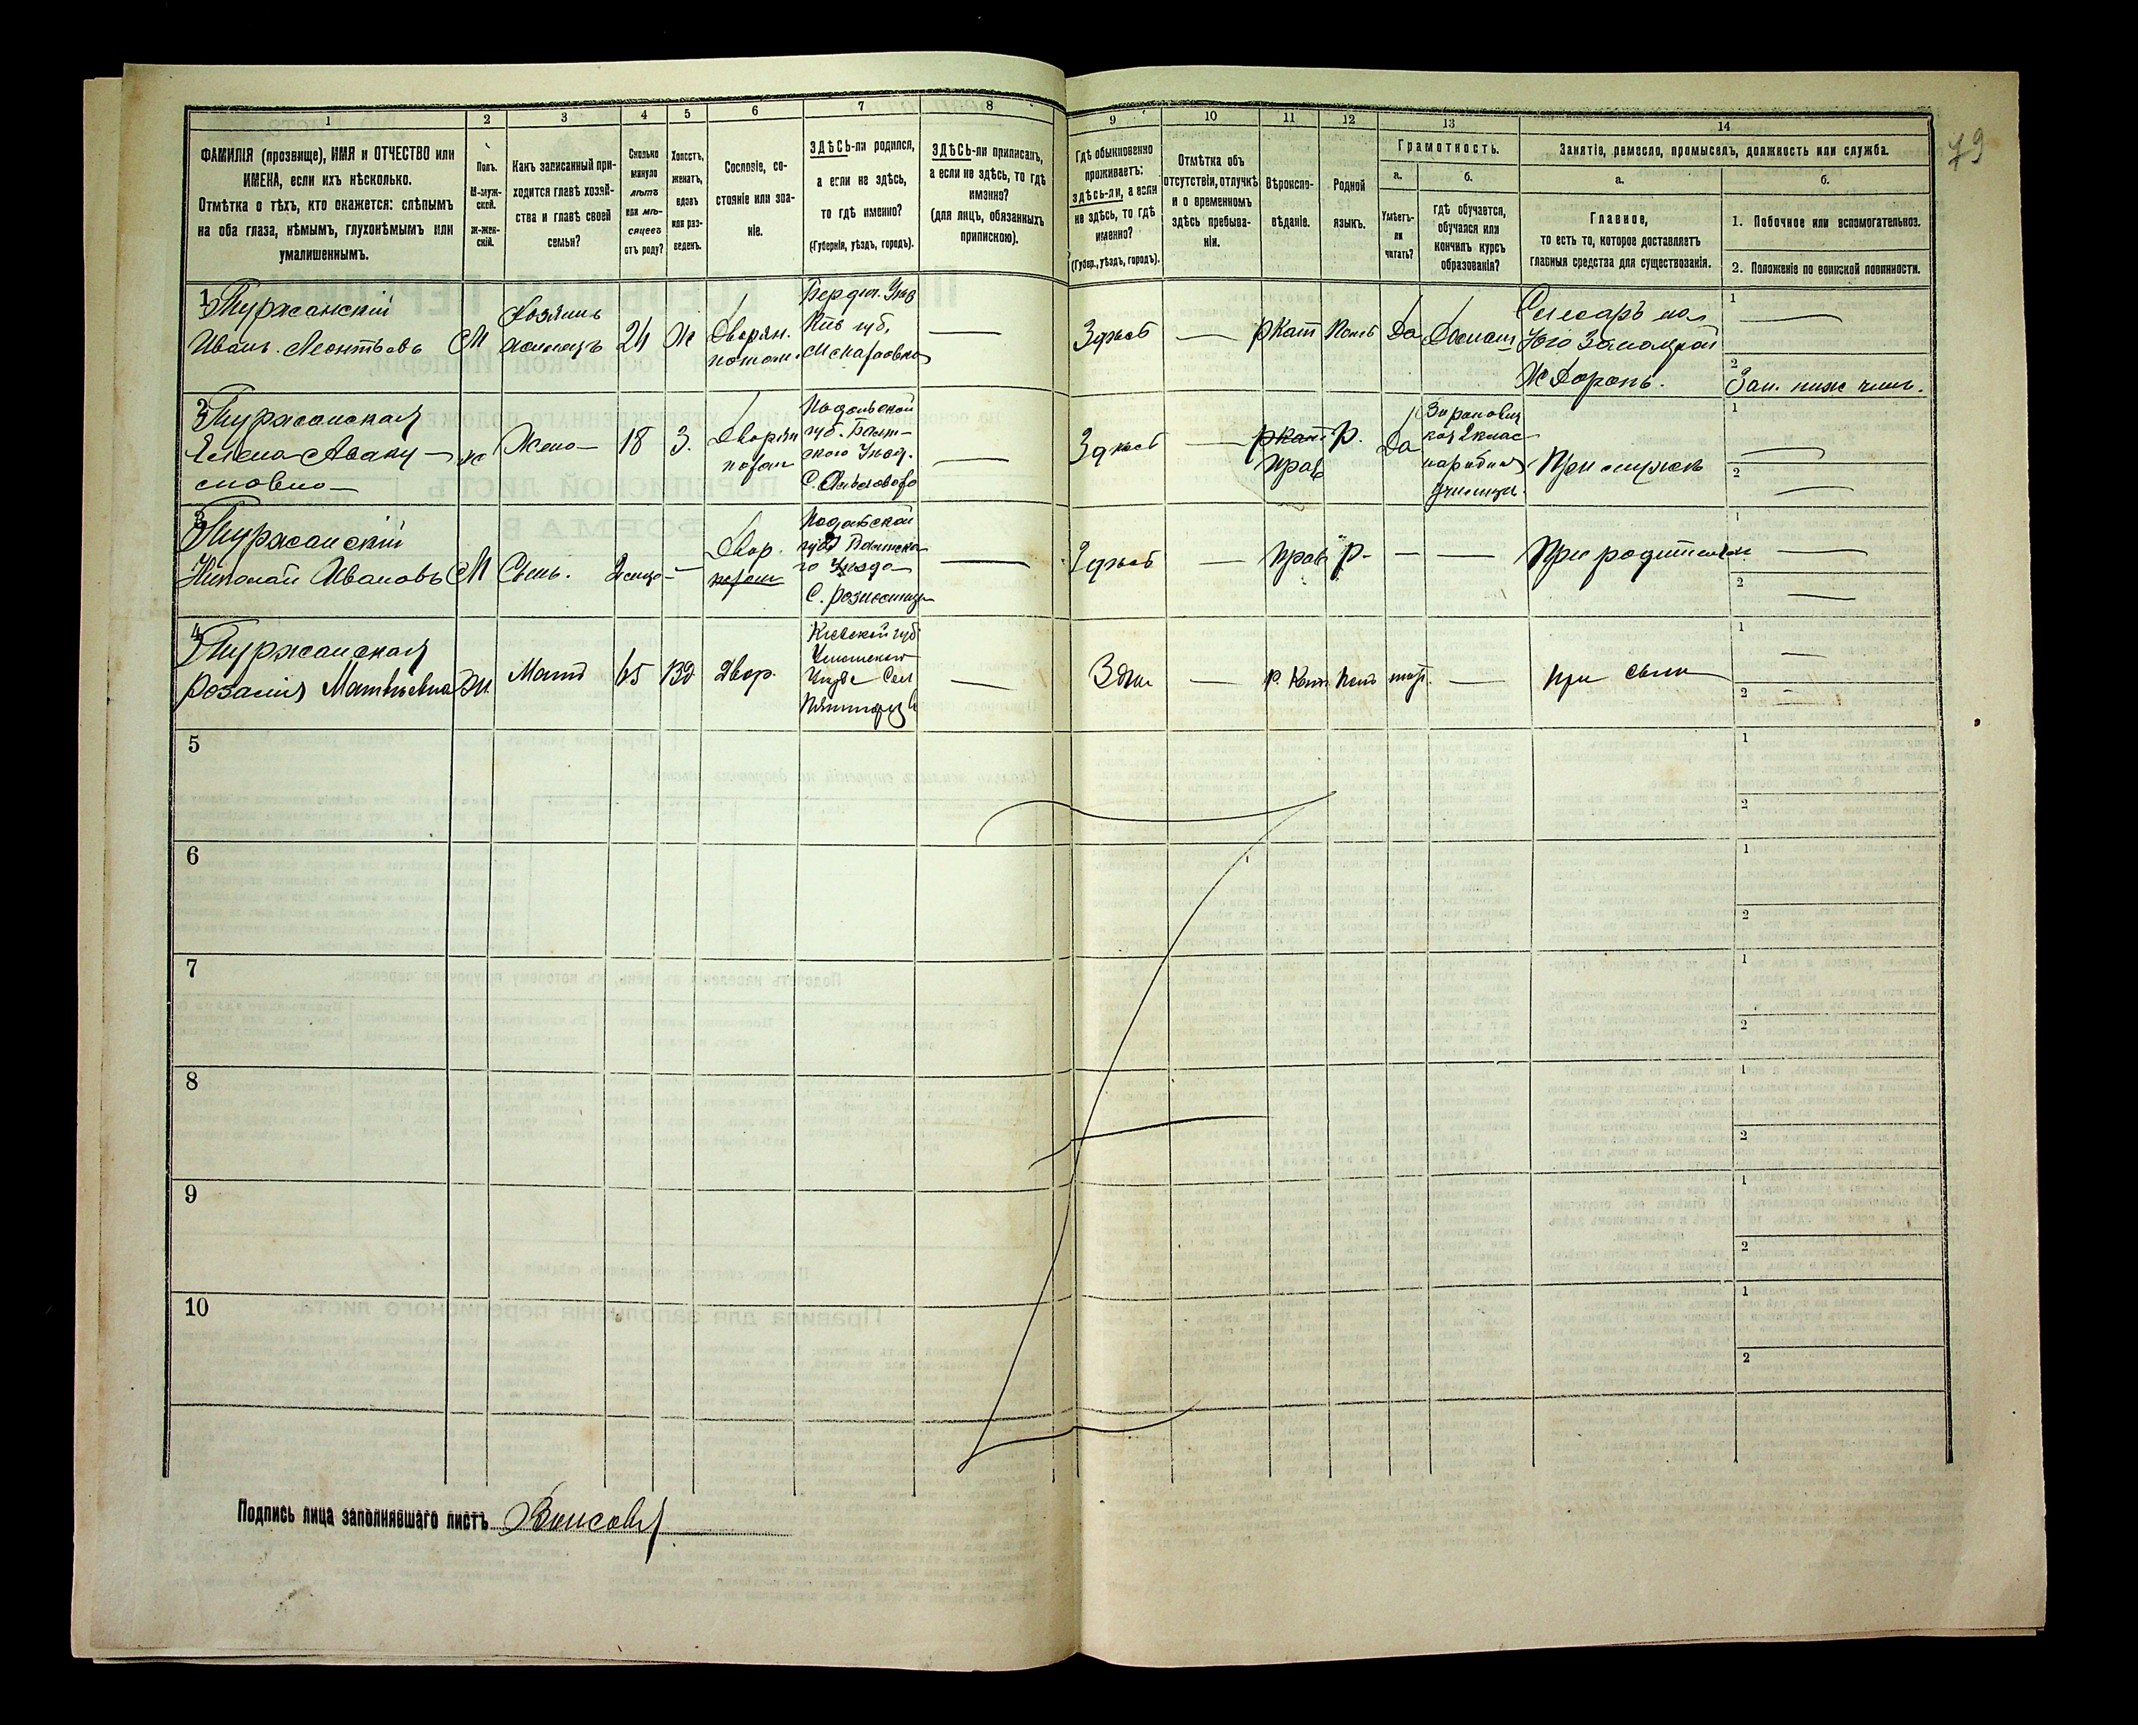 79
1 2 3 4 5 6 7 8 9 10 11 12 13 14
ФАМИЛІЯ (прозвище), ИМЯ и ОТЧЕСТВО или
ИМЕНА, если ихъ нѣсколько.
Отмѣтка о тѣхъ, кто окажется: слѣпымъ
на оба глаза, нѣмымъ, глухонѣмымъ или
умалишеннымъ.
Полъ.
М-муж-
ской.
Ж-жен-
скій.
Какъ записанный при-
ходится главѣ хозяй-
ства и главѣ своей
семьи?
Сколько
минуло
лѣтъ
или мѣ-
сяцевъ
отъ роду?
Холостъ,
женатъ,
вдовъ
или раз-
веденъ.
Сословіе, со-
стояніе или зва-
ніе.
ЗДѢСЬ-ли родился,
а если не здѣсь,
то гдѣ именно?
(Губернія, уѣздъ, городъ).
ЗДѢСЬ-ли приписанъ,
а если не здѣсь, то гдѣ
именно?
(для лицъ, обязанныхъ
припискою).
Гдѣ обыкновенно
проживаетъ:
здѣсь-ли, а если
не здѣсь, то гдѣ
именно?
(Губер., уѣздъ, городъ).
Отмѣтка объ
отсутствіи, отлучкѣ
и о временномъ
здѣсь пребыва-
ніи.
Вѣроиспо-
вѣданіе.
Родной
языкъ.
Грамотность.
а.
Умѣетъ-
ли
читать?
б.
гдѣ обучается,
обучался или
кончилъ курсъ
образованія?
Занятіе, ремесло, промыселъ, должность или служба.
а.
Главное,
то есть то, которое доставляетъ
главныя средства для существованія.
б.
1. Побочное или вспомогательное.
2. Положеніе по воинской повинности.
1 Туржанскій
Иванъ Леонтьевъ
М
Хозяинъ
24
Ж
Дворян.
потом.
Бердич. Уѣз
Кіев губ,
—
Здѣсь
—
РКат
Да
Домаш
Слесарь на
Юго Западной
Ж Дорогѣ.
1 —
2 Зап. ниж чин.
2 Туржанская
Елена
Ж
Жена
18
З.
Дворян
потом
Подольской
губ. Балт-
ского Уѣзд.
—
Здѣсь
—
РКат
Прав
Р.
Да
2 клас
народная
училищ.
При мужѣ
1 —
2 —
3 Туржанскій
Николай Ивановъ
М
Сынъ.
—
Двор.
потом
Подольской
губ Балтска-
го Уѣзда
С.
—
Здѣсь
—
Прав
Р-
—
—
При родителях
1 —
2 —
4 Туржанская
Розалія Матвѣевна
Ж.
Мать
65
Вд
Двор.
Кіевской губ
—
—
Р. Кат
—
при сынѣ
1
2 —
5 1 2
6 1 2
7 1 2
8 1 2
9 1 2
10 1 2
Подпись лица заполнявшаго листъ